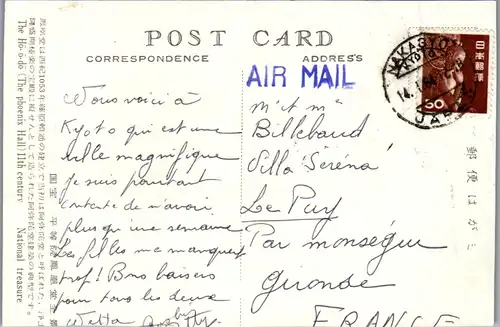 POST CARD
CORRESPONDENCE
ADDRESS
AIR MAIL
NAKAGYO
KYOTO
JAPAN
日本郵便
50
郵便はがき
Vous voici à
Kyoto qui est une
ville magnifique
Je suis pourtant
contente de n'avoir
plus que une semaine
Les filles me manquent
prof! Bons baisers
pour tous les deux
Mr et Me
Billebaud
Villa Séréna
Le Puy
Par monségur
Gironde
FRANCE
The Hō-ō-do (The phoenix Hall) 11th century National treasure
国宝 平等院鳳凰堂全景